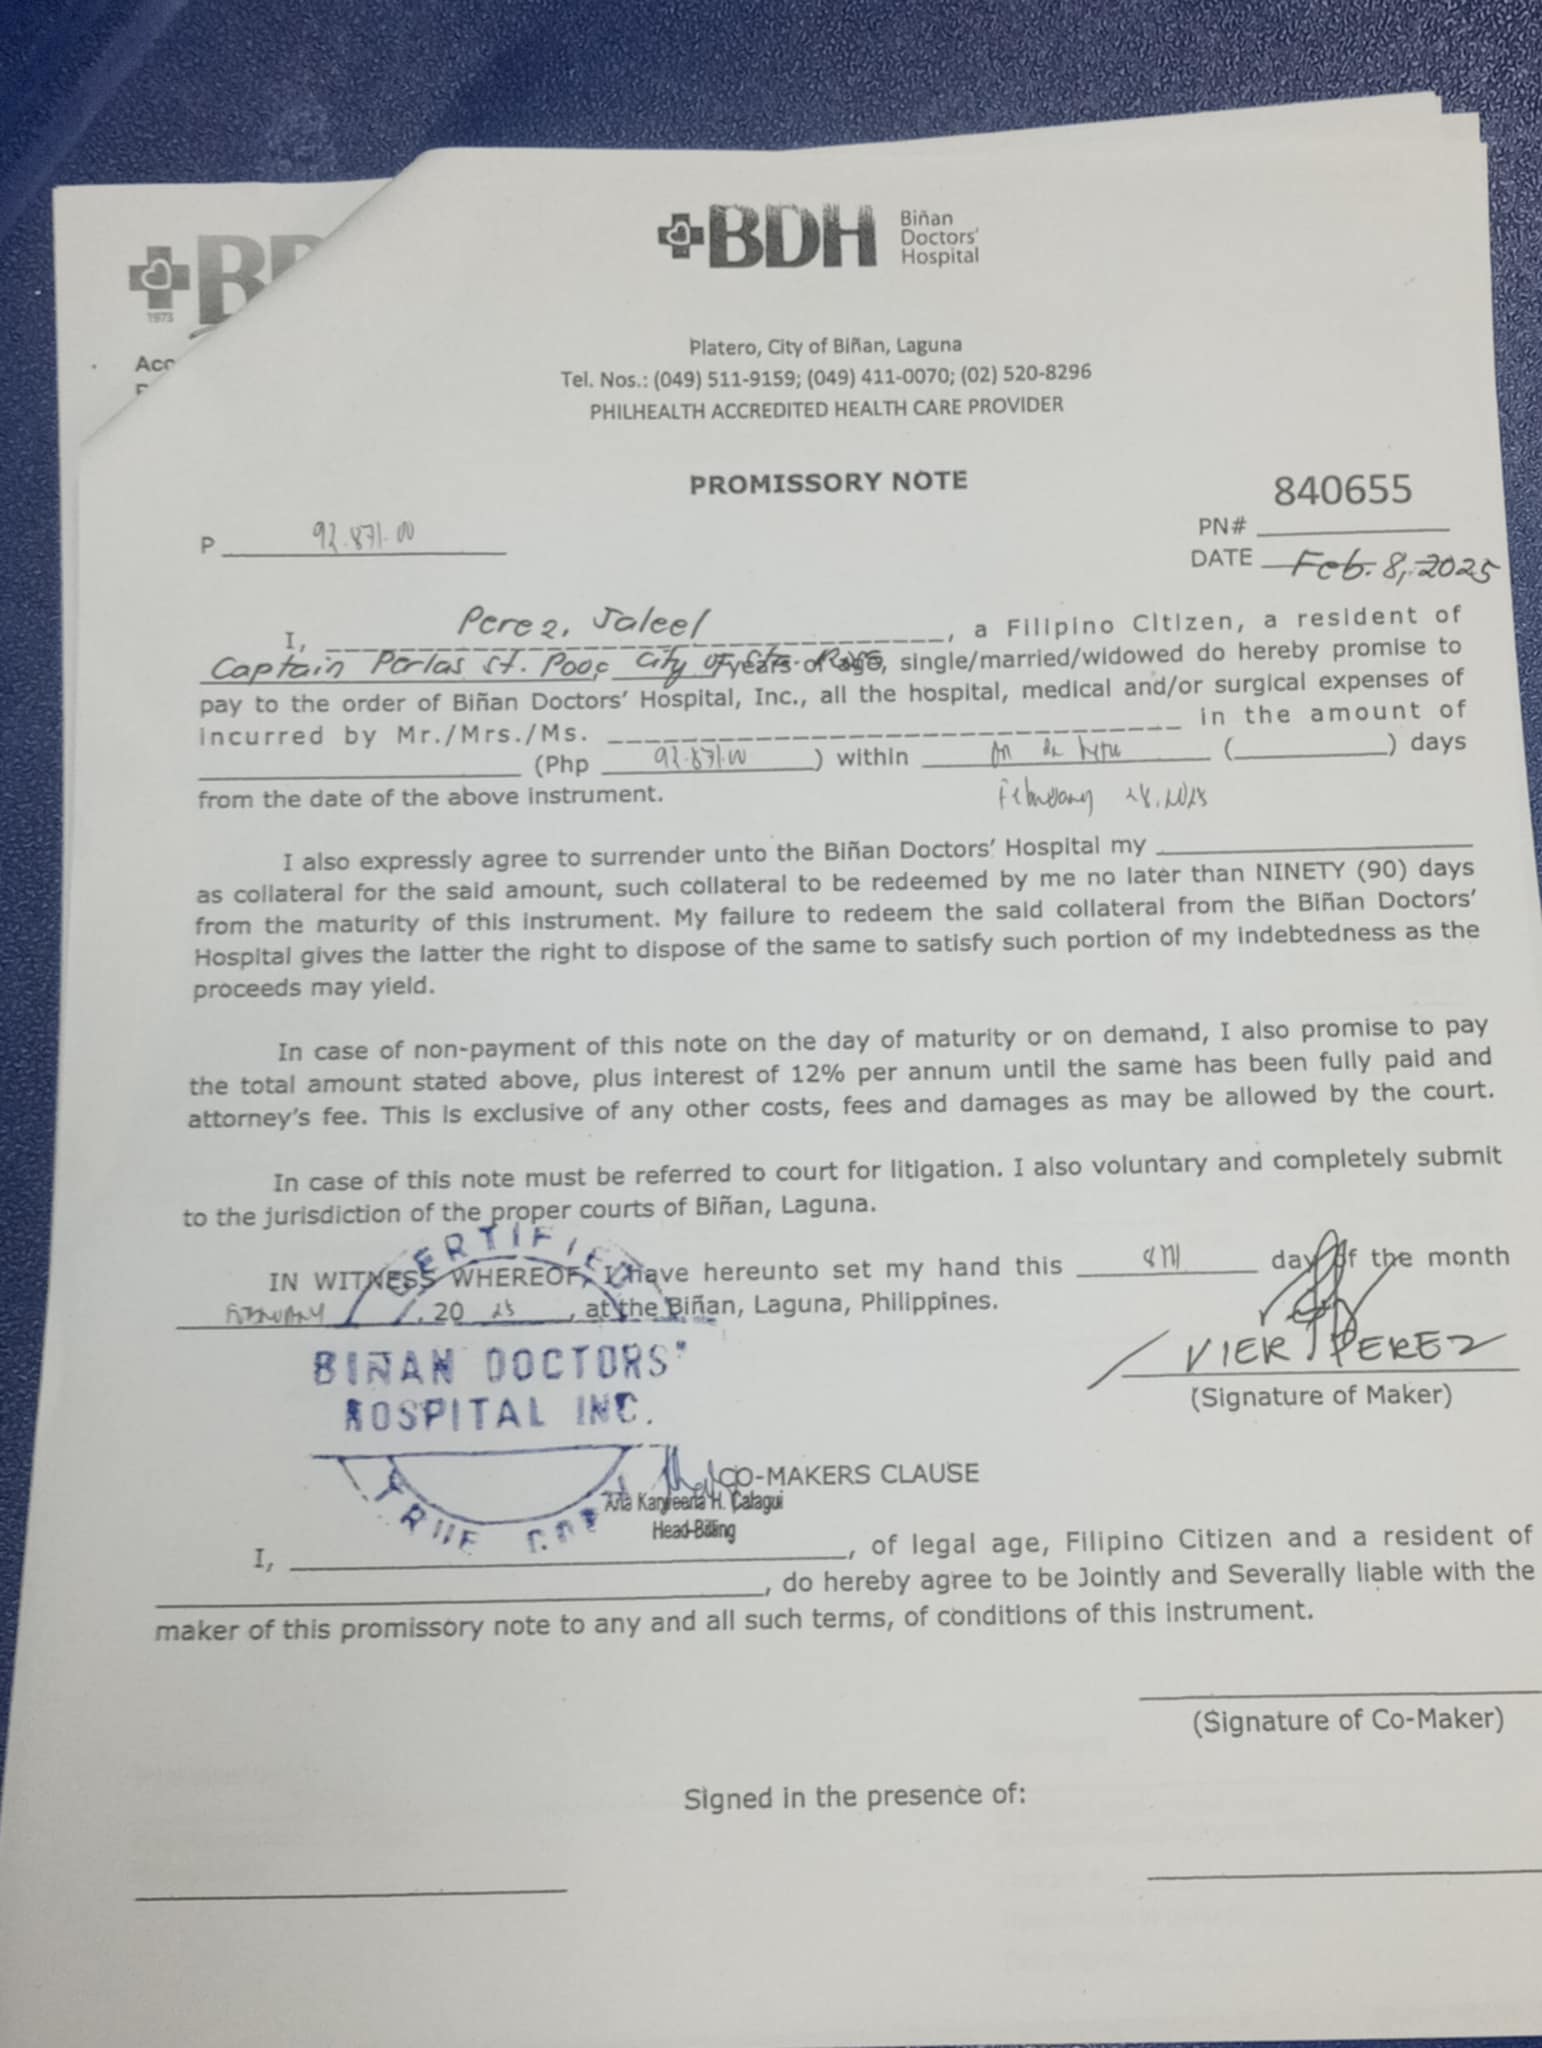 BDH Biñan Doctors' Hospital
1973
Platero, City of Biñan, Laguna
Tel. Nos.: (049) 511-9159; (049) 411-0070; (02) 520-8296
PHILHEALTH ACCREDITED HEALTH CARE PROVIDER
PROMISSORY NOTE
840655
P 92,871.00 PN#
DATE Feb. 8, 2025
I, Perez, Jaleel, a Filipino Citizen, a resident of
Captain Perlas St. Pooc, City of Sta. Rosa years of age, single/married/widowed do hereby promise to
pay to the order of Biñan Doctors' Hospital, Inc., all the hospital, medical and/or surgical expenses of
incurred by Mr./Mrs./Ms. in the amount of
(Php 92,871.00 ) within on or before ( ) days
from the date of the above instrument. February 28, 2025
I also expressly agree to surrender unto the Biñan Doctors' Hospital my
as collateral for the said amount, such collateral to be redeemed by me no later than NINETY (90) days
from the maturity of this instrument. My failure to redeem the said collateral from the Biñan Doctors'
Hospital gives the latter the right to dispose of the same to satisfy such portion of my indebtedness as the
proceeds may yield.
In case of non-payment of this note on the day of maturity or on demand, I also promise to pay
the total amount stated above, plus interest of 12% per annum until the same has been fully paid and
attorney's fee. This is exclusive of any other costs, fees and damages as may be allowed by the court.
In case of this note must be referred to court for litigation. I also voluntary and completely submit
to the jurisdiction of the proper courts of Biñan, Laguna.
IN WITNESS WHEREOF, I have hereunto set my hand this 8TH day of the month
February, 20 25, at the Biñan, Laguna, Philippines.
CERTIFIED
BIÑAN DOCTORS'
HOSPITAL INC.
TRUE COPY
VIER PEREZ
(Signature of Maker)
CO-MAKERS CLAUSE
H. Calagui
Head-Billing
I, , of legal age, Filipino Citizen and a resident of
, do hereby agree to be Jointly and Severally liable with the
maker of this promissory note to any and all such terms, of conditions of this instrument.
(Signature of Co-Maker)
Signed in the presence of: